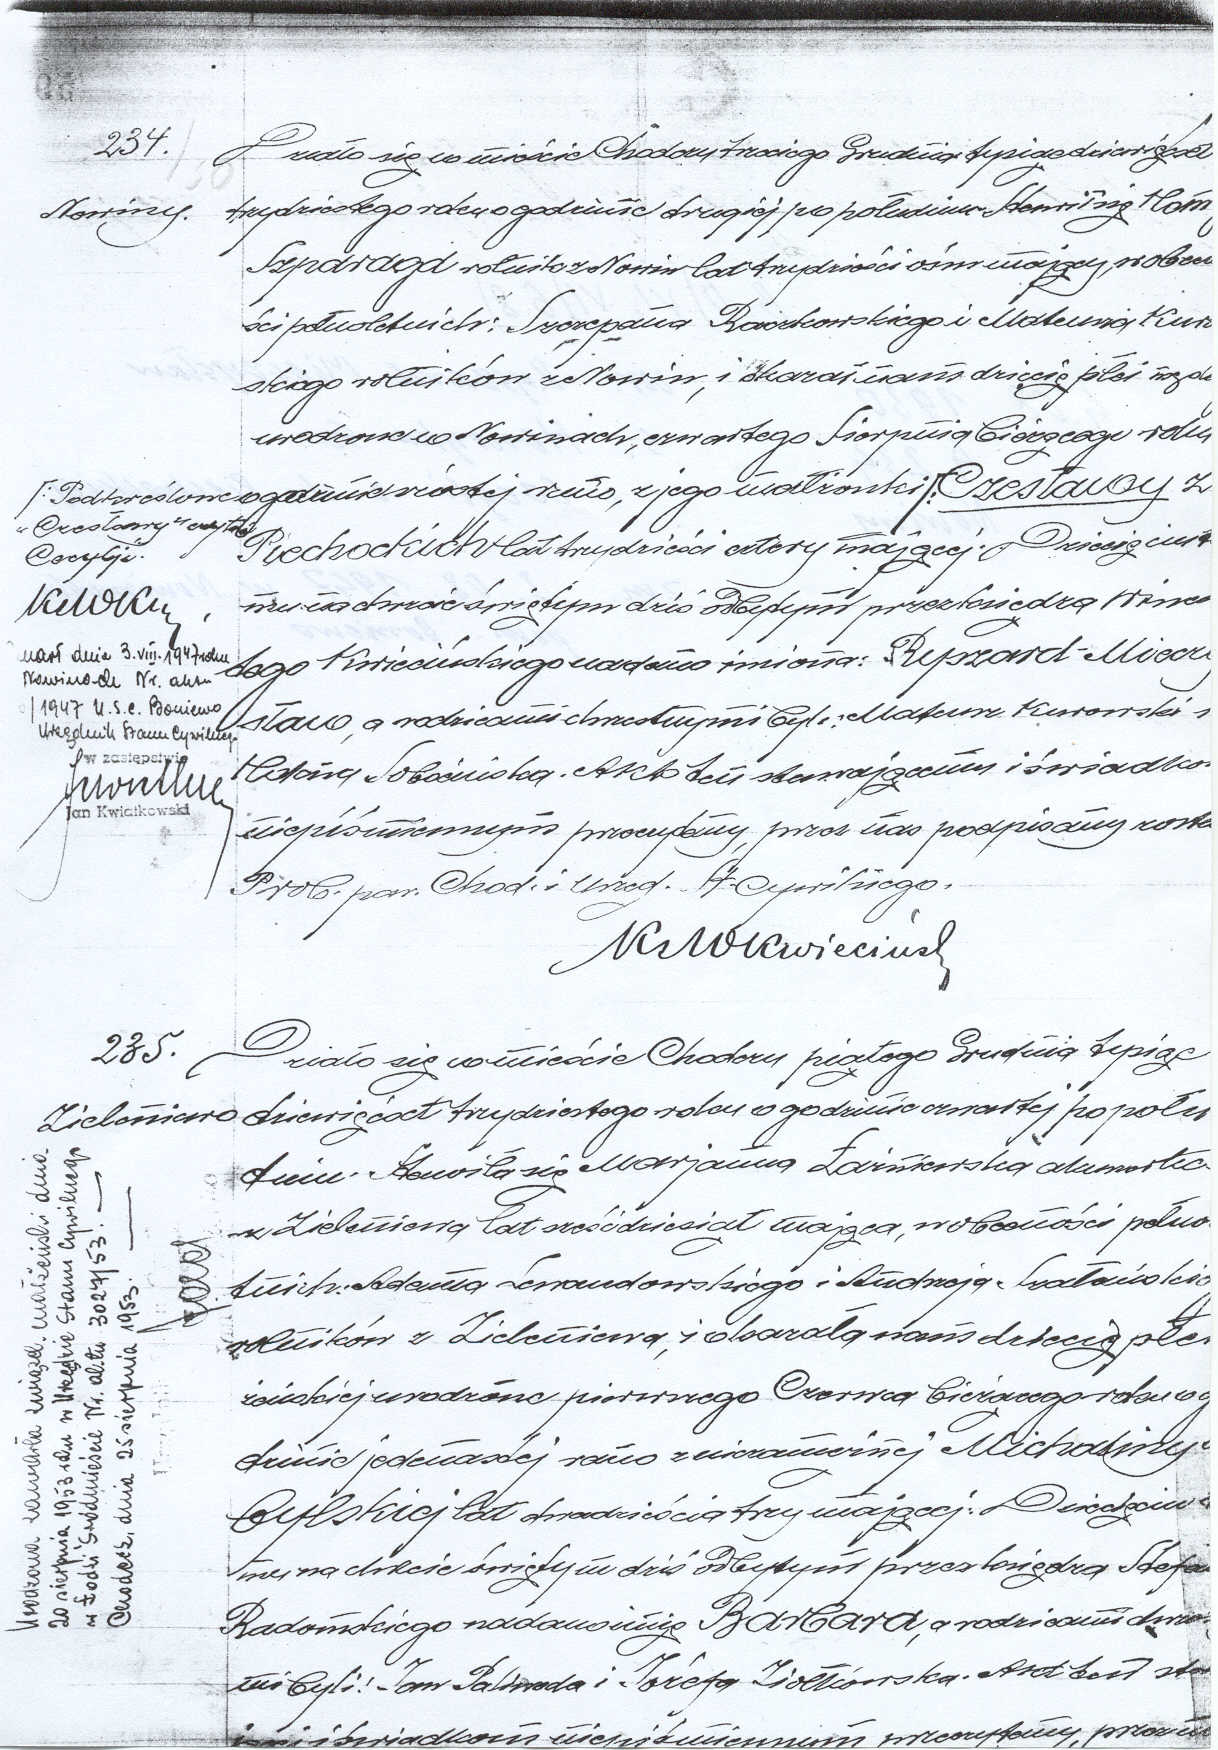 234.
Działo się w mieście Chodczu trzeciego Grudnia tysiąc dziewięćset
Nowiny.
trzydziestego roku o godzinie drugiej po południu. Stawił się
Szparaga rolnik z Nowin lat trzydzieści ośm mający, w obecno
ści pełnoletnich: Szczepana Raczkowskiego i Mateusza Kur
skiego rolników z Nowin, i okazał nam dziecię płci
urodzone w Nowinach, czwartego Sierpnia bieżącego roku
o godzinie szóstej rano, z jego małżonki /: Czesławy z
Piechockich lat trzydzieści cztery mającej. Dziecięciu
mu na chrzcie świętym dziś odbytym przez księdza Wince
tego Kwiecińskiego nadano imiona: Ryszard-Mieczy
sław, a rodzicami chrzestnymi byli: Mateusz Kurowski i
Sobocińska. Akt ten stawającemu i świadkom
niepiśmiennym przeczytany, przez nas podpisany został.
Prob. par. Chod. i Urzęd. St. Cywilnego.
Ks W Kwieciński
/: Podkreślone
"Czesławy" czytać
Cecylji.
Ks W Kw
marł dnia 3.VIII.1947 roku
Nr. aktu
/1947 U.S.C. Boniewo
Urzędnik Stanu Cywilnego
w zastępstwie
Jan Kwiatkowski
235.
Działo się w mieście Chodczu piątego Grudnia tysiąc
Zieleniewo
dziewięćset trzydziestego roku o godzinie czwartej po połu
dniu. Stawiła się Marjanna Łaźniewska akuszerka
z Zieleniewa lat sześćdziesiąt mająca, w obecności pełno
tnich: Adama Lewandowskiego i Andrzeja Szatańskiego
rolników z Zieleniewa, i okazała nam dziecię płci
żeńskiej urodzone pierwszego Czerwca bieżącego roku o go
dzinie jedenastej rano z niezamężnej Michaliny
Cylskiej lat dwadzieścia trzy mającej. Dziecięciu
mu na chrzcie świętym dziś odbytym przez księdza Stefana
Radomskiego nadano imię Barbara, a rodzicami chrzest
mi byli: Jan i Józefa Ziółkowska. Akt ten sta
i świadkom niepiśmiennym przeczytany, przez n
Urodzona zawarła związek małżeński dnia
20 sierpnia 1953 roku w Urzędzie Stanu Cywilnego
w Łodzi Śródmieście Nr. aktu 3027/53.
Chodecz, dnia 25 sierpnia 1953.